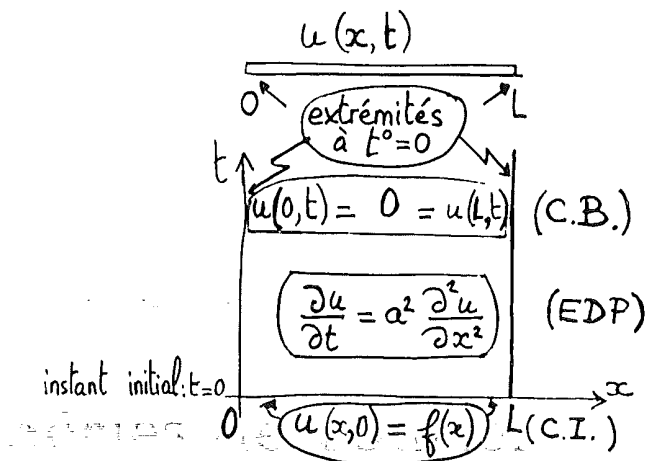 u(x,t)
O L
extrémités
à t°=0
t
u(0,t) = 0 = u(L,t) (C.B.)
∂u/∂t = a² ∂²u/∂x² (EDP)
instant initial: t=0 x
0 u(x,0) = f(x) L (C.I.)